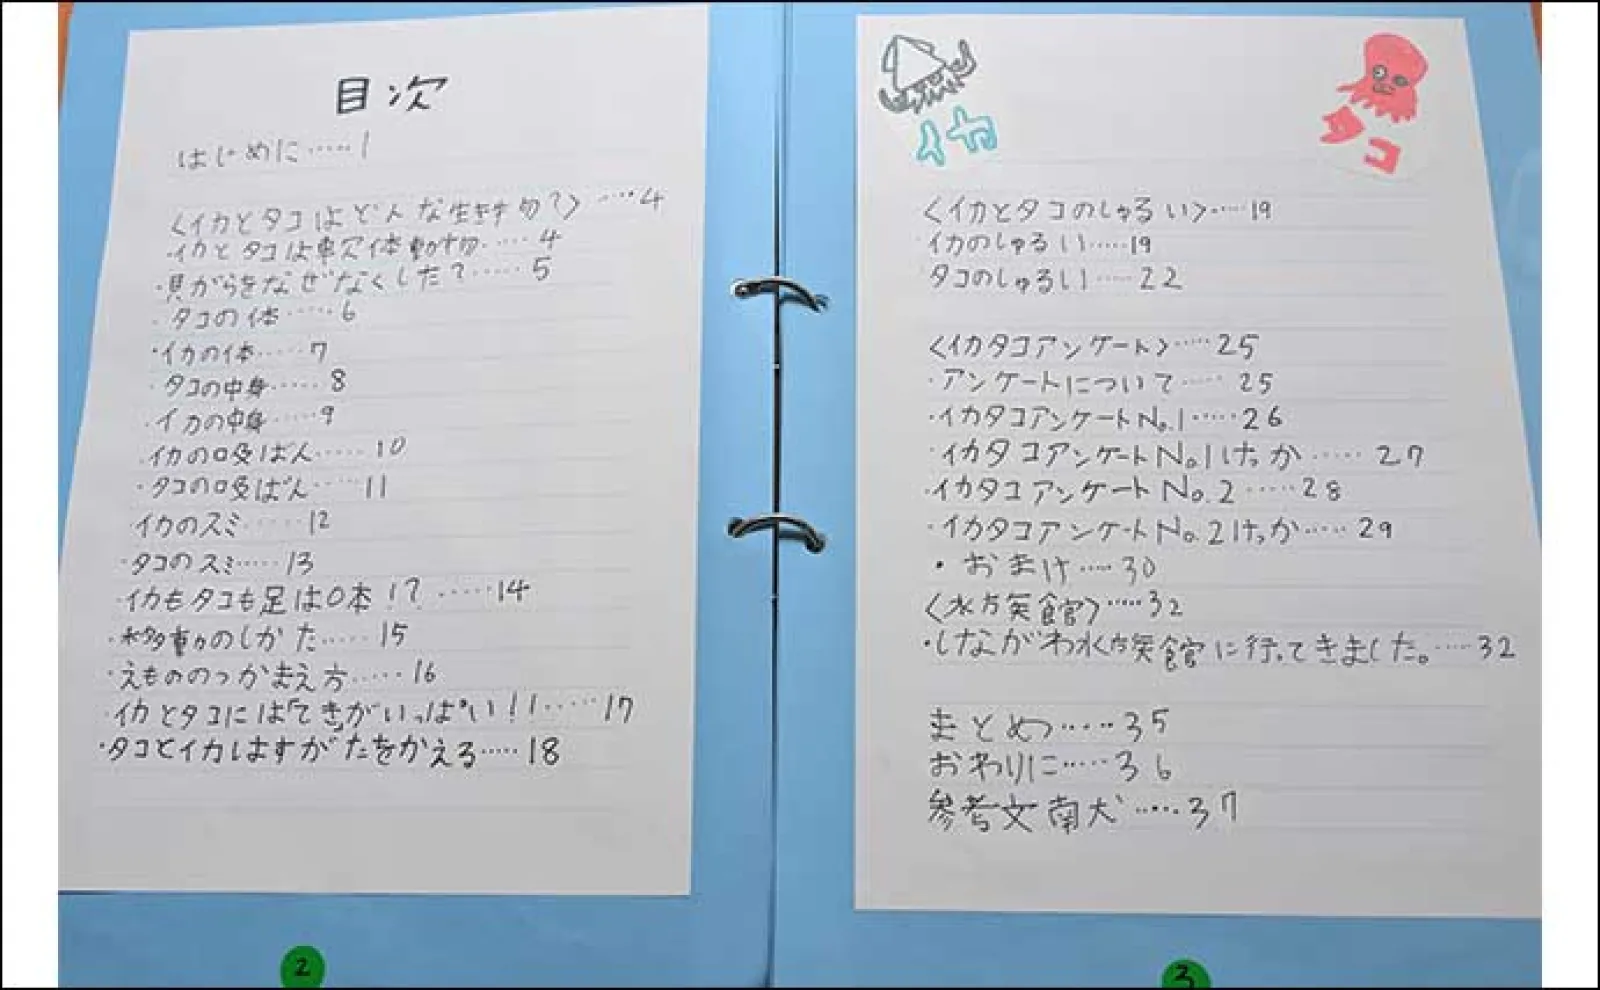 目次
はじめに……1
〈イカとタコはどんな生き物？〉……4
・イカとタコは軟体動物……4
・貝がらをなぜなくした？……5
・タコの体……6
・イカの体……7
・タコの中身……8
・イカの中身……9
・イカの吸ばん……10
・タコの吸ばん……11
・イカのスミ……12
・タコのスミ……13
・イカもタコも足は0本！？……14
・移動のしかた……15
・えもののつかまえ方……16
・イカとタコには「てき」がいっぱい！！……17
・タコとイカはますがたをかえる……18
2
イカ
タコ
〈イカとタコのしゅるい〉……19
イカのしゅるい……19
タコのしゅるい……22
〈イカタコアンケート〉……25
・アンケートについて……25
・イカタコアンケートNo.1……26
・イカタコアンケートNo.1けっか……27
・イカタコアンケートNo.2……28
・イカタコアンケートNo.2けっか……29
・おまけ……30
〈水族館〉……32
・しながわ水族館に行ってきました。……32
まとめ……35
おわりに……36
参考文献……37
3